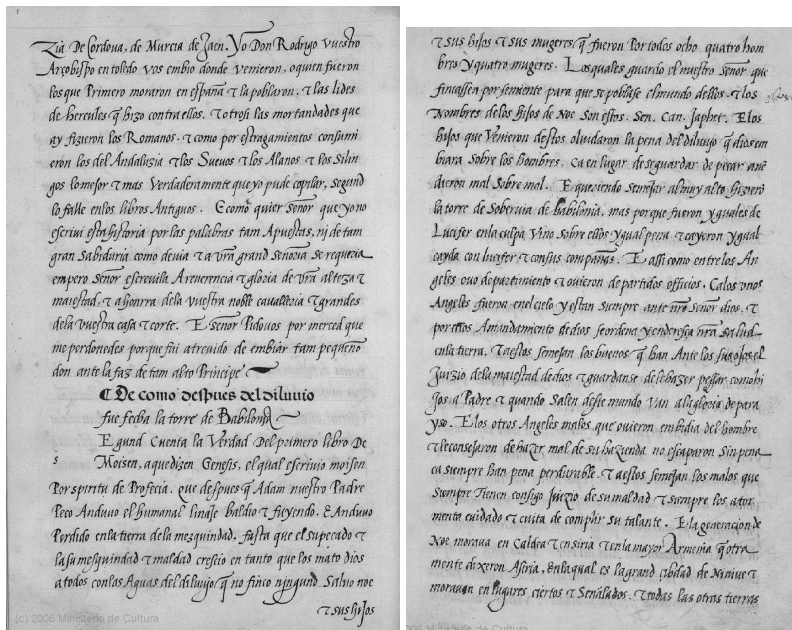 zia De Cordova, de Murcia de Jaen. Yo Don Rodrigo vuestro
Arçobispo en toledo vos embio donde venieron, o quien fueron
los que Primero moraron en españa τ la poblaron, τ las lides
de hercules q̃ hizo contra ellos. τ otrosi las mortandades que
ay fizieron los Romanos. τ como por estragamientos consumi
eron los del Andaluzia τ los Suevos τ los Alanos τ los Silin
gos lo mejor τ mas Verdaderamente que yo pude copilar, segund
lo falle en los libros Antiguos. E como quier señor que yo no
escrivi esta historia por las palabras tam Apuestas, ni de tam
gran Sabiduria como devia τ a vr̃a grand señoria se requeria
empero señor escrevilla A reverencia τ gloria de vr̃a alteza τ
maiestad, τ a honrra dela vuestra noble cavalleria τ grandes
dela vuestra casa τ corte. E señor Pido vos por merced que
me perdonedes porque fui atrevido de embiar tam pequeño
don ante la faz de tam alto Principe
De como despues del diluvio
fue fecha la torre de Babilonia
s Egund Cuenta la Verdad Del primero libro De
Moisen, a que dizen Genesis, el qual escrivio moisen
Por spiritu de Profecia. que despues q̃ Adam nuestro Padre
Peco Anduvo el humanal linaje baldio τ fuyendo. E Anduvo
Perdido en la tierra de la mezquindad. fasta que el su pecado τ
la su mesquindad τ maldad crescio en tanto que los mato dios
a todos con las Aguas del diluvio q̃ no finco ningund Salvo noe
τ sus hijos
τ sus hijos τ sus mugeres q̃ fueron Por todos ocho quatro hom
bres y quatro mugeres. Los quales guardo el nuestro señor que
fincassen por semiente para que se poblase el mundo dellos. τ los
Nombres de los hijos de Noe Son estos. Sen. Can. Japhet. E los
hijos que Venieron destos olvidaron la pena del diluvio q̃ dios em
biara Sobre los hombres. ca en lugar de se guardar de pecar aña
dieron mal Sobre mal. E queriendo Semejar al muy alto hizierõ
la torre de Sobervia de babilonia, mas porque fueron yguales de
Lucifer en la culpa Vino Sobre ellos ygual pena τ cayeron ygual
cayda con lucifer τ con sus compañas. E assi como entre los An
geles ovo departimiento τ ovieron departidos officios, Ca los vnos
Angeles fueron en el cielo y estan siempre ante nr̃o señor dios. τ
por ellos A mandamiento de dios se ordena y enderesça nr̃a salud
en la tierra. τ a estos semejan los buenos q̃ han Ante los sus ojos el
Juizio dela maiestad de dios τ guardanse de le hazer pessar como hi
jos a Padre τ quando Salen deste mundo Van a la gloria de para
yso. E los otros Angeles malos que ovieron embidia del hombre
τ le consejaron de hazer mal de su hazienda no escaparon Sin pena
ca siempre han pena perdurable. τ a estos semejan los malos que
Siempre Tienen consigo juizio de su maldad τ siempre los ator
menta cuidado τ cuita de complir su talante. E la generacion de
Noe morava en Caldea τ en siria τ en la mayor Armenia q̃ otra
mente dixeron Asiria, en la qual es la grand çibdad de Ninive τ
moravan en lugares ciertos τ Señalados. τ todas las otras tierras
(c) 2006 Ministerio de Cultura
006 Ministerio de Cultura